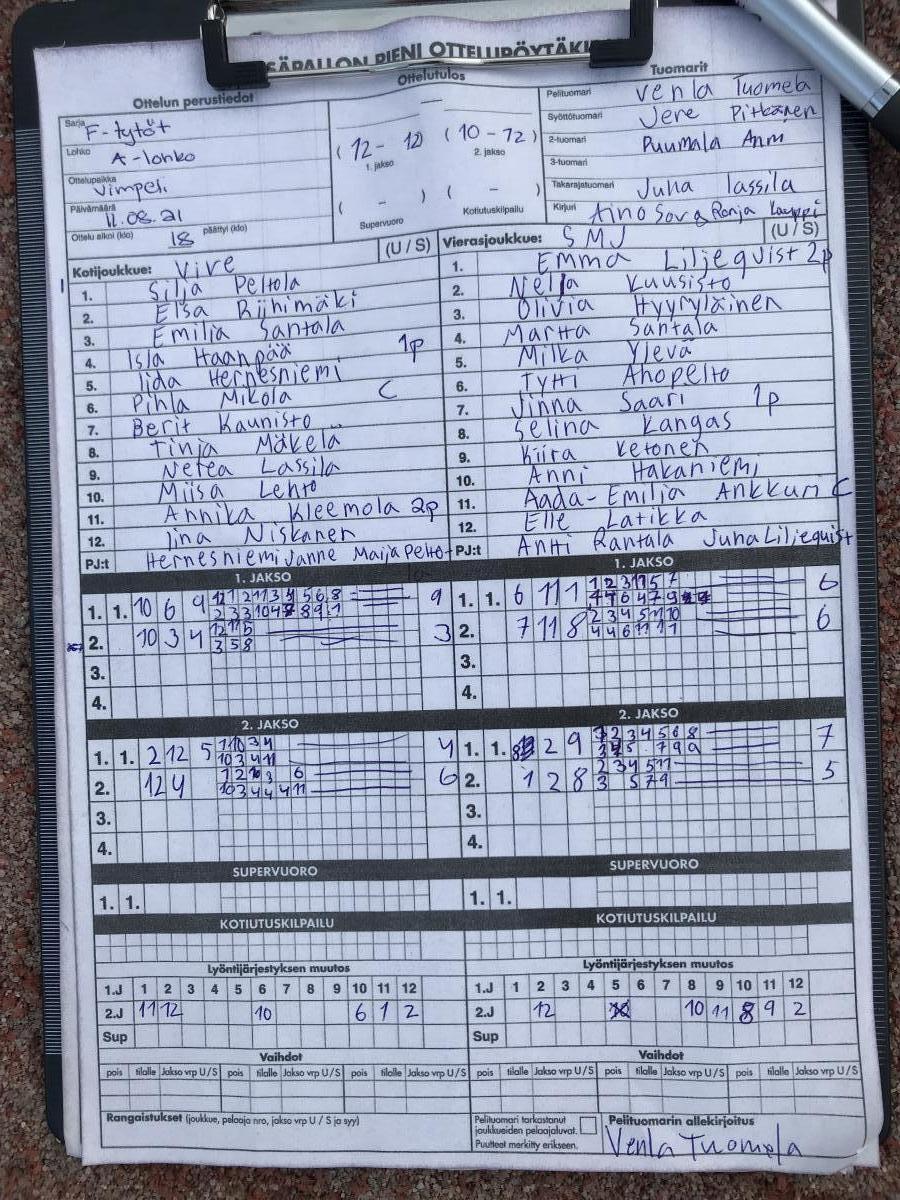 SÄPALLON PIENI OTTELUPÖYTÄKI
Ottelun perustiedot
Ottelutulos
Tuomarit
Sarja F-tytöt
Lohko A-lohko
Ottelupaikka Vimpeli
Päivämäärä 11.08.21
Ottelu alkoi (klo) 18 päättyi (klo)
–
(12 – 12) (10 – 12)
1. jakso 2. jakso
( – ) ( – )
Supervuoro Kotiutuskilpailu
Pelituomari Venla Tuomela
Syöttötuomari Jere Pitkänen
2-tuomari Puumala Anni
3-tuomari
Takarajatuomari Juha Lassila
Kirjuri Aino Ronja
Kotijoukkue: Vive (U / S)
1. Silja Peltola
2. Elsa Riihimäki
3. Emilia Santala
4. Isla Haanpää 1p
5. Iida Hernesniemi
6. Pihla Mikola C
7. Berit Kaunisto
8. Tinja Mäkelä
9. Netea Lassila
10. Miisa Lehto
11. Annika Kleemola 2p
12. Iina Niskanen
PJ:t Hernesniemi Janne Maija Pelto-
la
Vierasjoukkue: SMJ (U / S)
1. Emma Liljequist 2p
2. Nella Kuusisto
3. Olivia Hyyryläinen
4. Martta Santala
5. Milka Ylevä
6. Tytti Ahopelto
7. Jinna Saari 1p
8. Selina Kangas
9. Kiira Ketonen
10. Anni Hakaniemi
11. Aada-Emilia Ankkuri C
12. Elle Latikka
PJ:t Antti Rantala Juha Liljequist
1. JAKSO
1. 1. 10 6 9 9
2. 10 3 4 3
3.
4.
1. JAKSO
1. 1. 6 11 1 6
2. 7 11 8 6
3.
4.
2. JAKSO
1. 1. 2 12 5 4
2. 12 4 6
3.
4.
2. JAKSO
1. 1. 2 9 7
2. 1 2 8 5
3.
4.
SUPERVUORO
1. 1.
SUPERVUORO
1. 1.
KOTIUTUSKILPAILU
KOTIUTUSKILPAILU
Lyöntijärjestyksen muutos
1.J 1 2 3 4 5 6 7 8 9 10 11 12
2.J 11 12 10 6 1 2
Sup
Lyöntijärjestyksen muutos
1.J 1 2 3 4 5 6 7 8 9 10 11 12
2.J 12 10 11 8 9 2
Sup
Vaihdot
pois tilalle Jakso vrp U/S pois tilalle Jakso vrp U/S pois tilalle Jakso vrp U/S
Vaihdot
pois tilalle Jakso vrp U/S pois tilalle Jakso vrp U/S pois tilalle Jakso vrp U/S
Rangaistukset (joukkue, pelaaja nro, jakso vrp U / S ja syy)
Pelituomari tarkastanut
joukkueiden pelaajaluvat.
Puutteet merkitty erikseen.
Pelituomarin allekirjoitus
Venla Tuomela